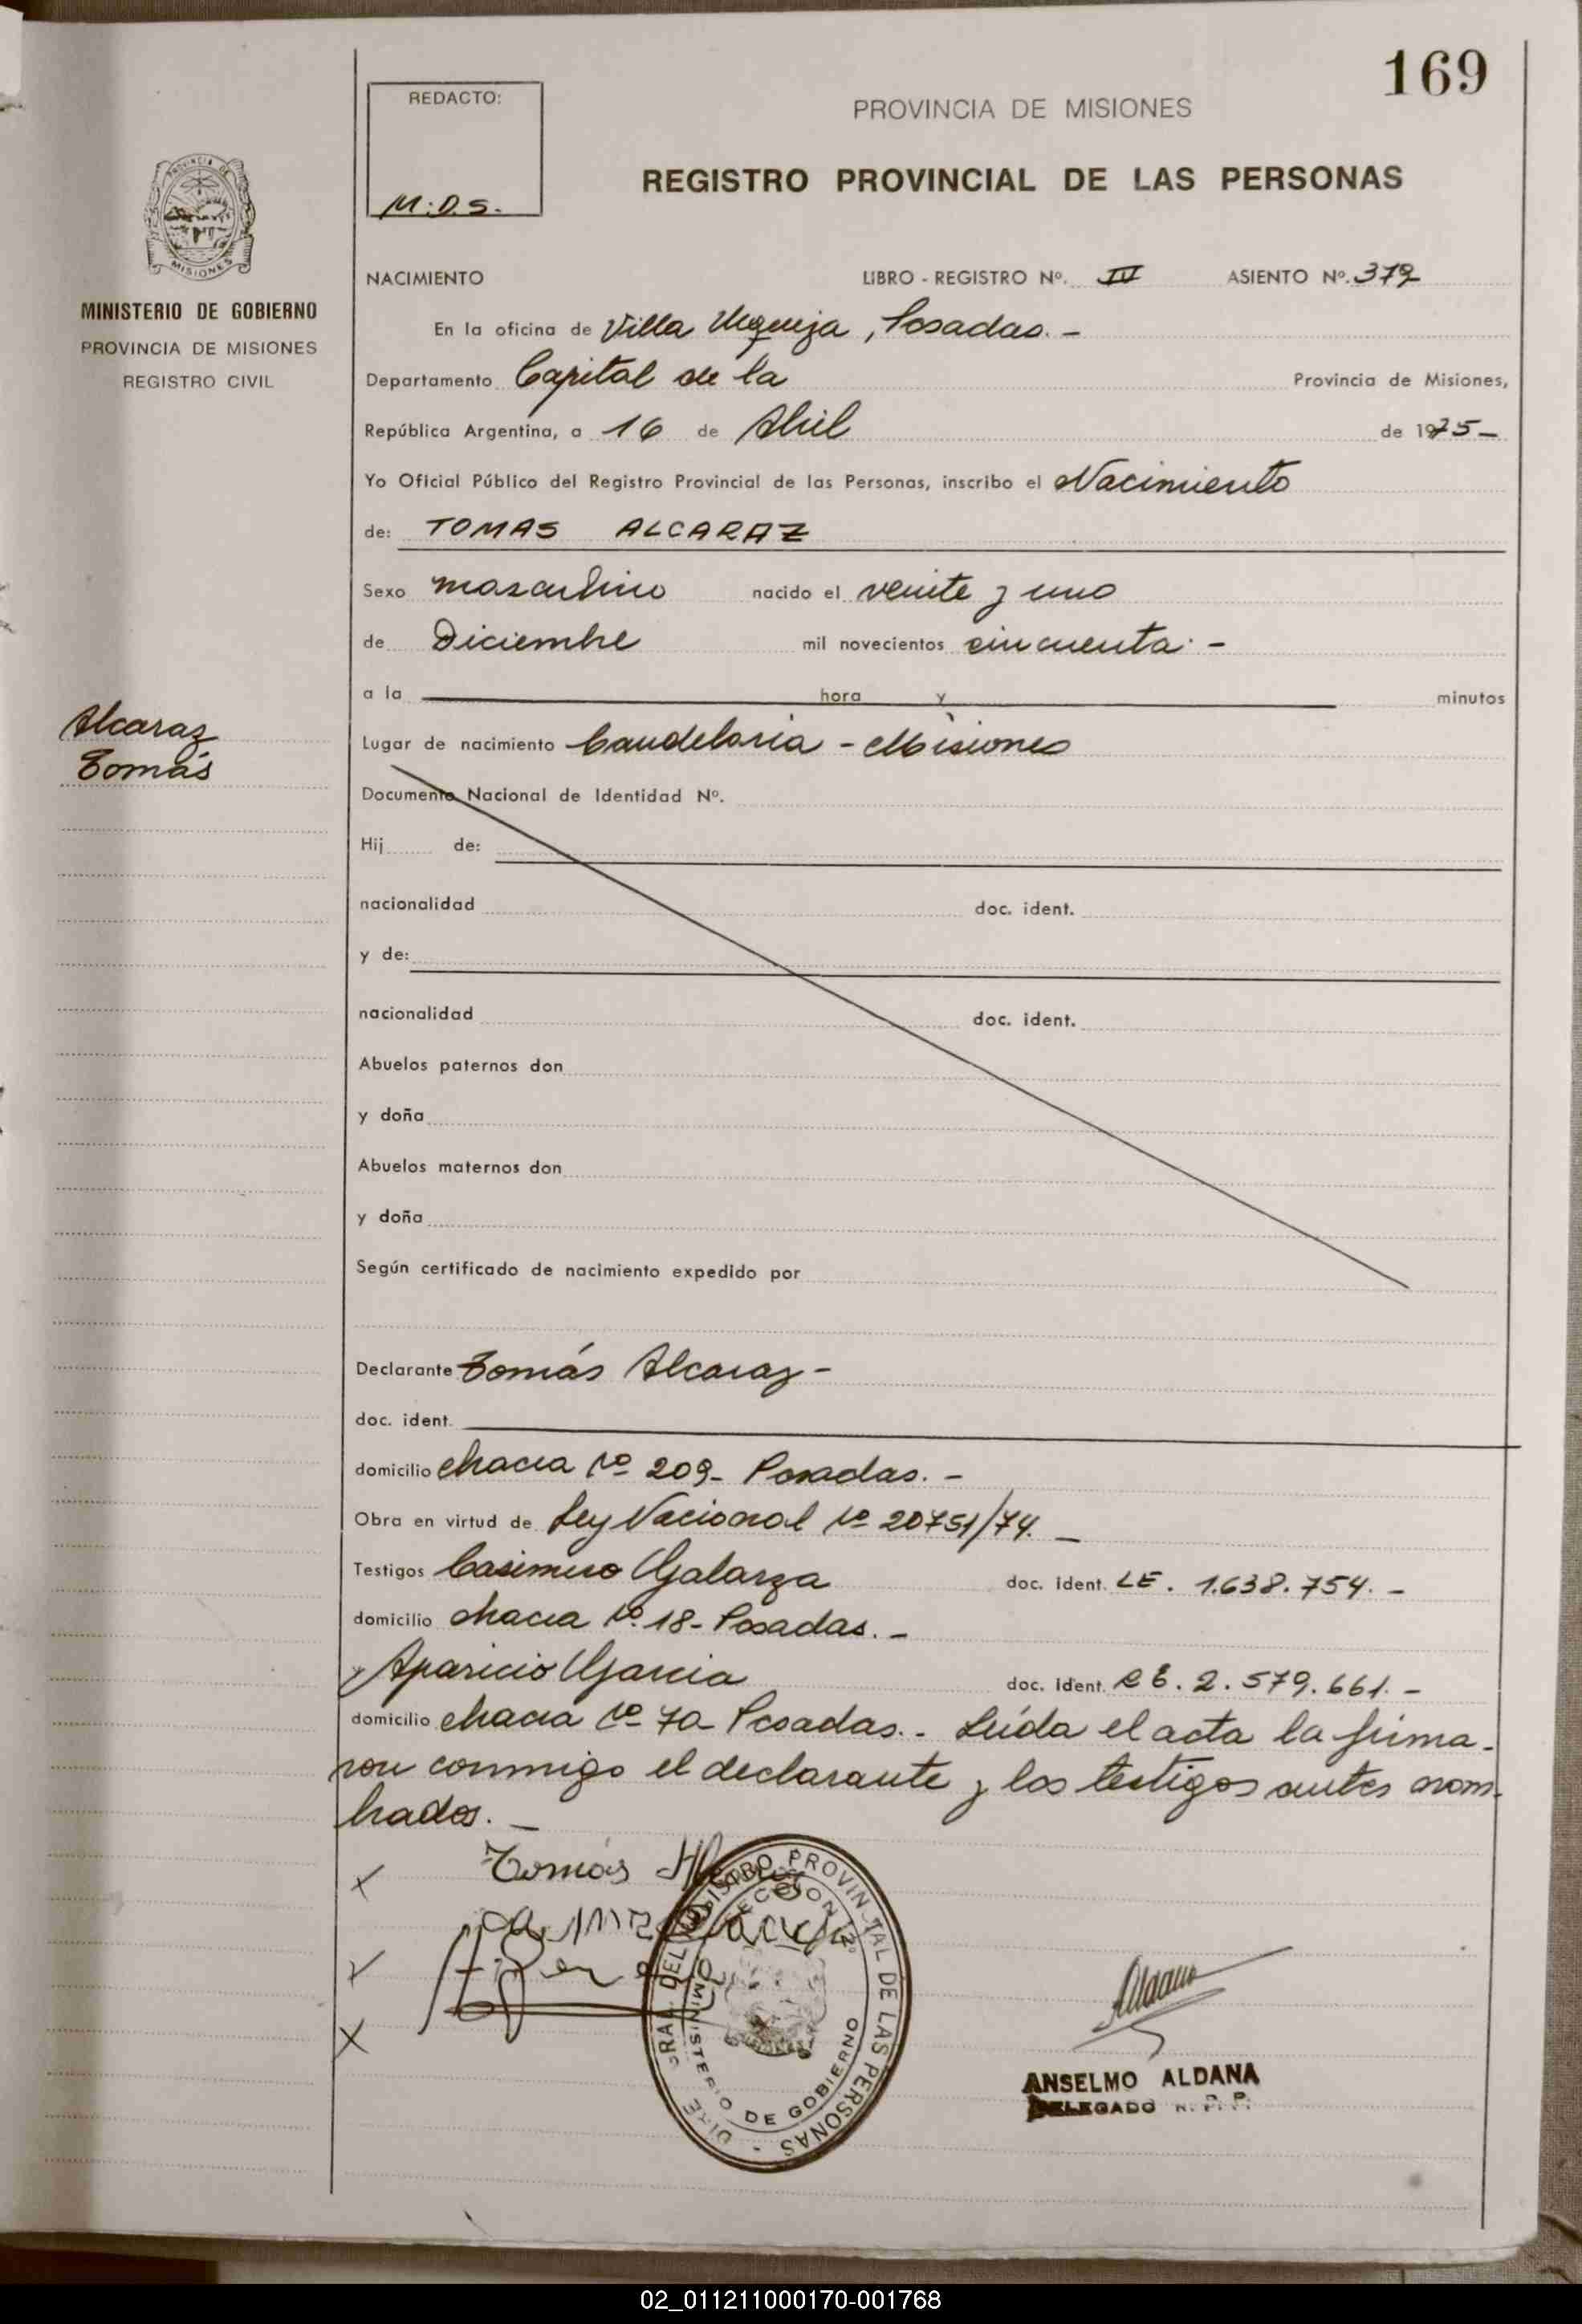 169
REDACTO:
M.D.S.
PROVINCIA DE MISIONES
REGISTRO PROVINCIAL DE LAS PERSONAS
PROVINCIA DE
MISIONES
MINISTERIO DE GOBIERNO
PROVINCIA DE MISIONES
REGISTRO CIVIL
NACIMIENTO LIBRO - REGISTRO Nº. IV ASIENTO Nº. 379
En la oficina de Villa Urquiza, Posadas. -
Departamento Capital de la Provincia de Misiones,
República Argentina, a 16 de Abril de 1975 -
Yo Oficial Público del Registro Provincial de las Personas, inscribo el Nacimiento
de: TOMAS ALCARAZ
Sexo masculino nacido el veinte y uno
de Diciembre mil novecientos cincuenta. -
a la hora y minutos
Alcaraz
Tomás
Lugar de nacimiento Candelaria - Misiones
Documento Nacional de Identidad Nº.
Hij de:
nacionalidad doc. ident.
y de:
nacionalidad doc. ident.
Abuelos paternos don
y doña
Abuelos maternos don
y doña
Según certificado de nacimiento expedido por
Declarante Tomás Alcaraz -
doc. ident.
domicilio chacra Nº 209 - Posadas. -
Obra en virtud de Ley Nacional Nº 20751/74. -
Testigos Casimiro Galarza doc. ident. LE. 1.638.754. -
domicilio chacra Nº. 18 - Posadas. -
y Aparicio Garcia doc. ident. LE. 2.579.661. -
domicilio chacra Nº 70 - Posadas. - Leída el acta la firma-
ron conmigo el declarante y los testigos antes nom-
brados. -
Tomás
REGISTRO PROVINCIAL DE LAS PERSONAS -
MINISTERIO DE GOBIERNO
Aldana
ANSELMO ALDANA
DELEGADO R. P. P.
02_011211000170-001768